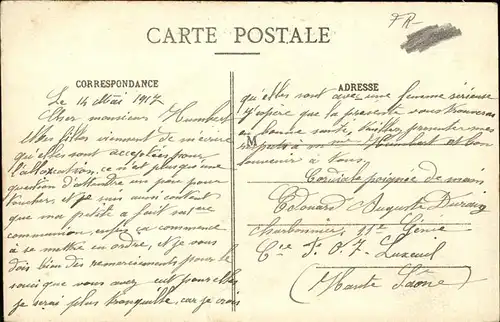 FR-
CARTE POSTALE
CORRESPONDANCE
Le 14 Mai 1917
Cher monsieur Humbert
Mes filles viennent de m'écrire
qu'elles sont acceptées pour
l'allocation, ce n'est plus qu'une
question d'attendre un peu pour
toucher, et je suis aussi content
que ma petite a fait sa 1re
communion, enfin ça commence
à se mettre en ordre, et je vous
dois bien des remerciements pour le
souci que vous avez eut pour elles
je serai plus tranquille, car je crois
ADRESSE
qu'elles sont avec une femme sérieuse
J'espère que la présente vous trouveras
en bonne santé, présenter mes
M
respects à Mme Humbert et bon
souvenir à tous,
Cordiale poignée de main
Edouard Auguste Durand
Charbonnier, 11e Génie
Cie F. O. 7 Luxeuil
(Haute Saône)